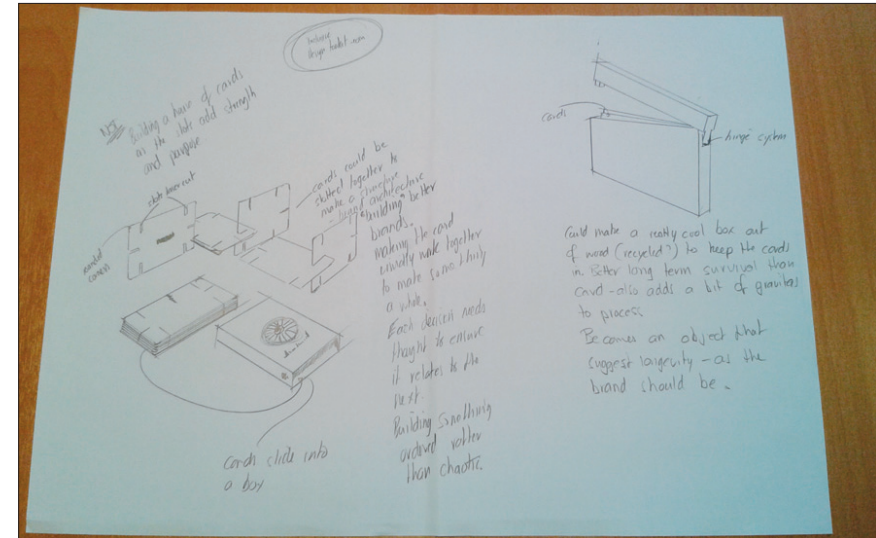 inclusive
design toolkit.com
NB
Building a house of cards
in the slots add strength
and purpose
slots been cut
rounded
corners
cards could be
slotted together to
make a structure
- brand architecture
"building" better
brands.
making the card
visually work together
to make something
a whole.
Each decision needs
thought to ensure
it relates to the
next.
Building something
ordered rather
than chaotic.
cards slide into
a box
cards
hinge system
Could make a really cool box out
of wood (recycled?) to keep the cards
in. Better long term survival than
card - also adds a bit of gravitas
to process.
Becomes an object that
suggest longevity - as the
brand should be.